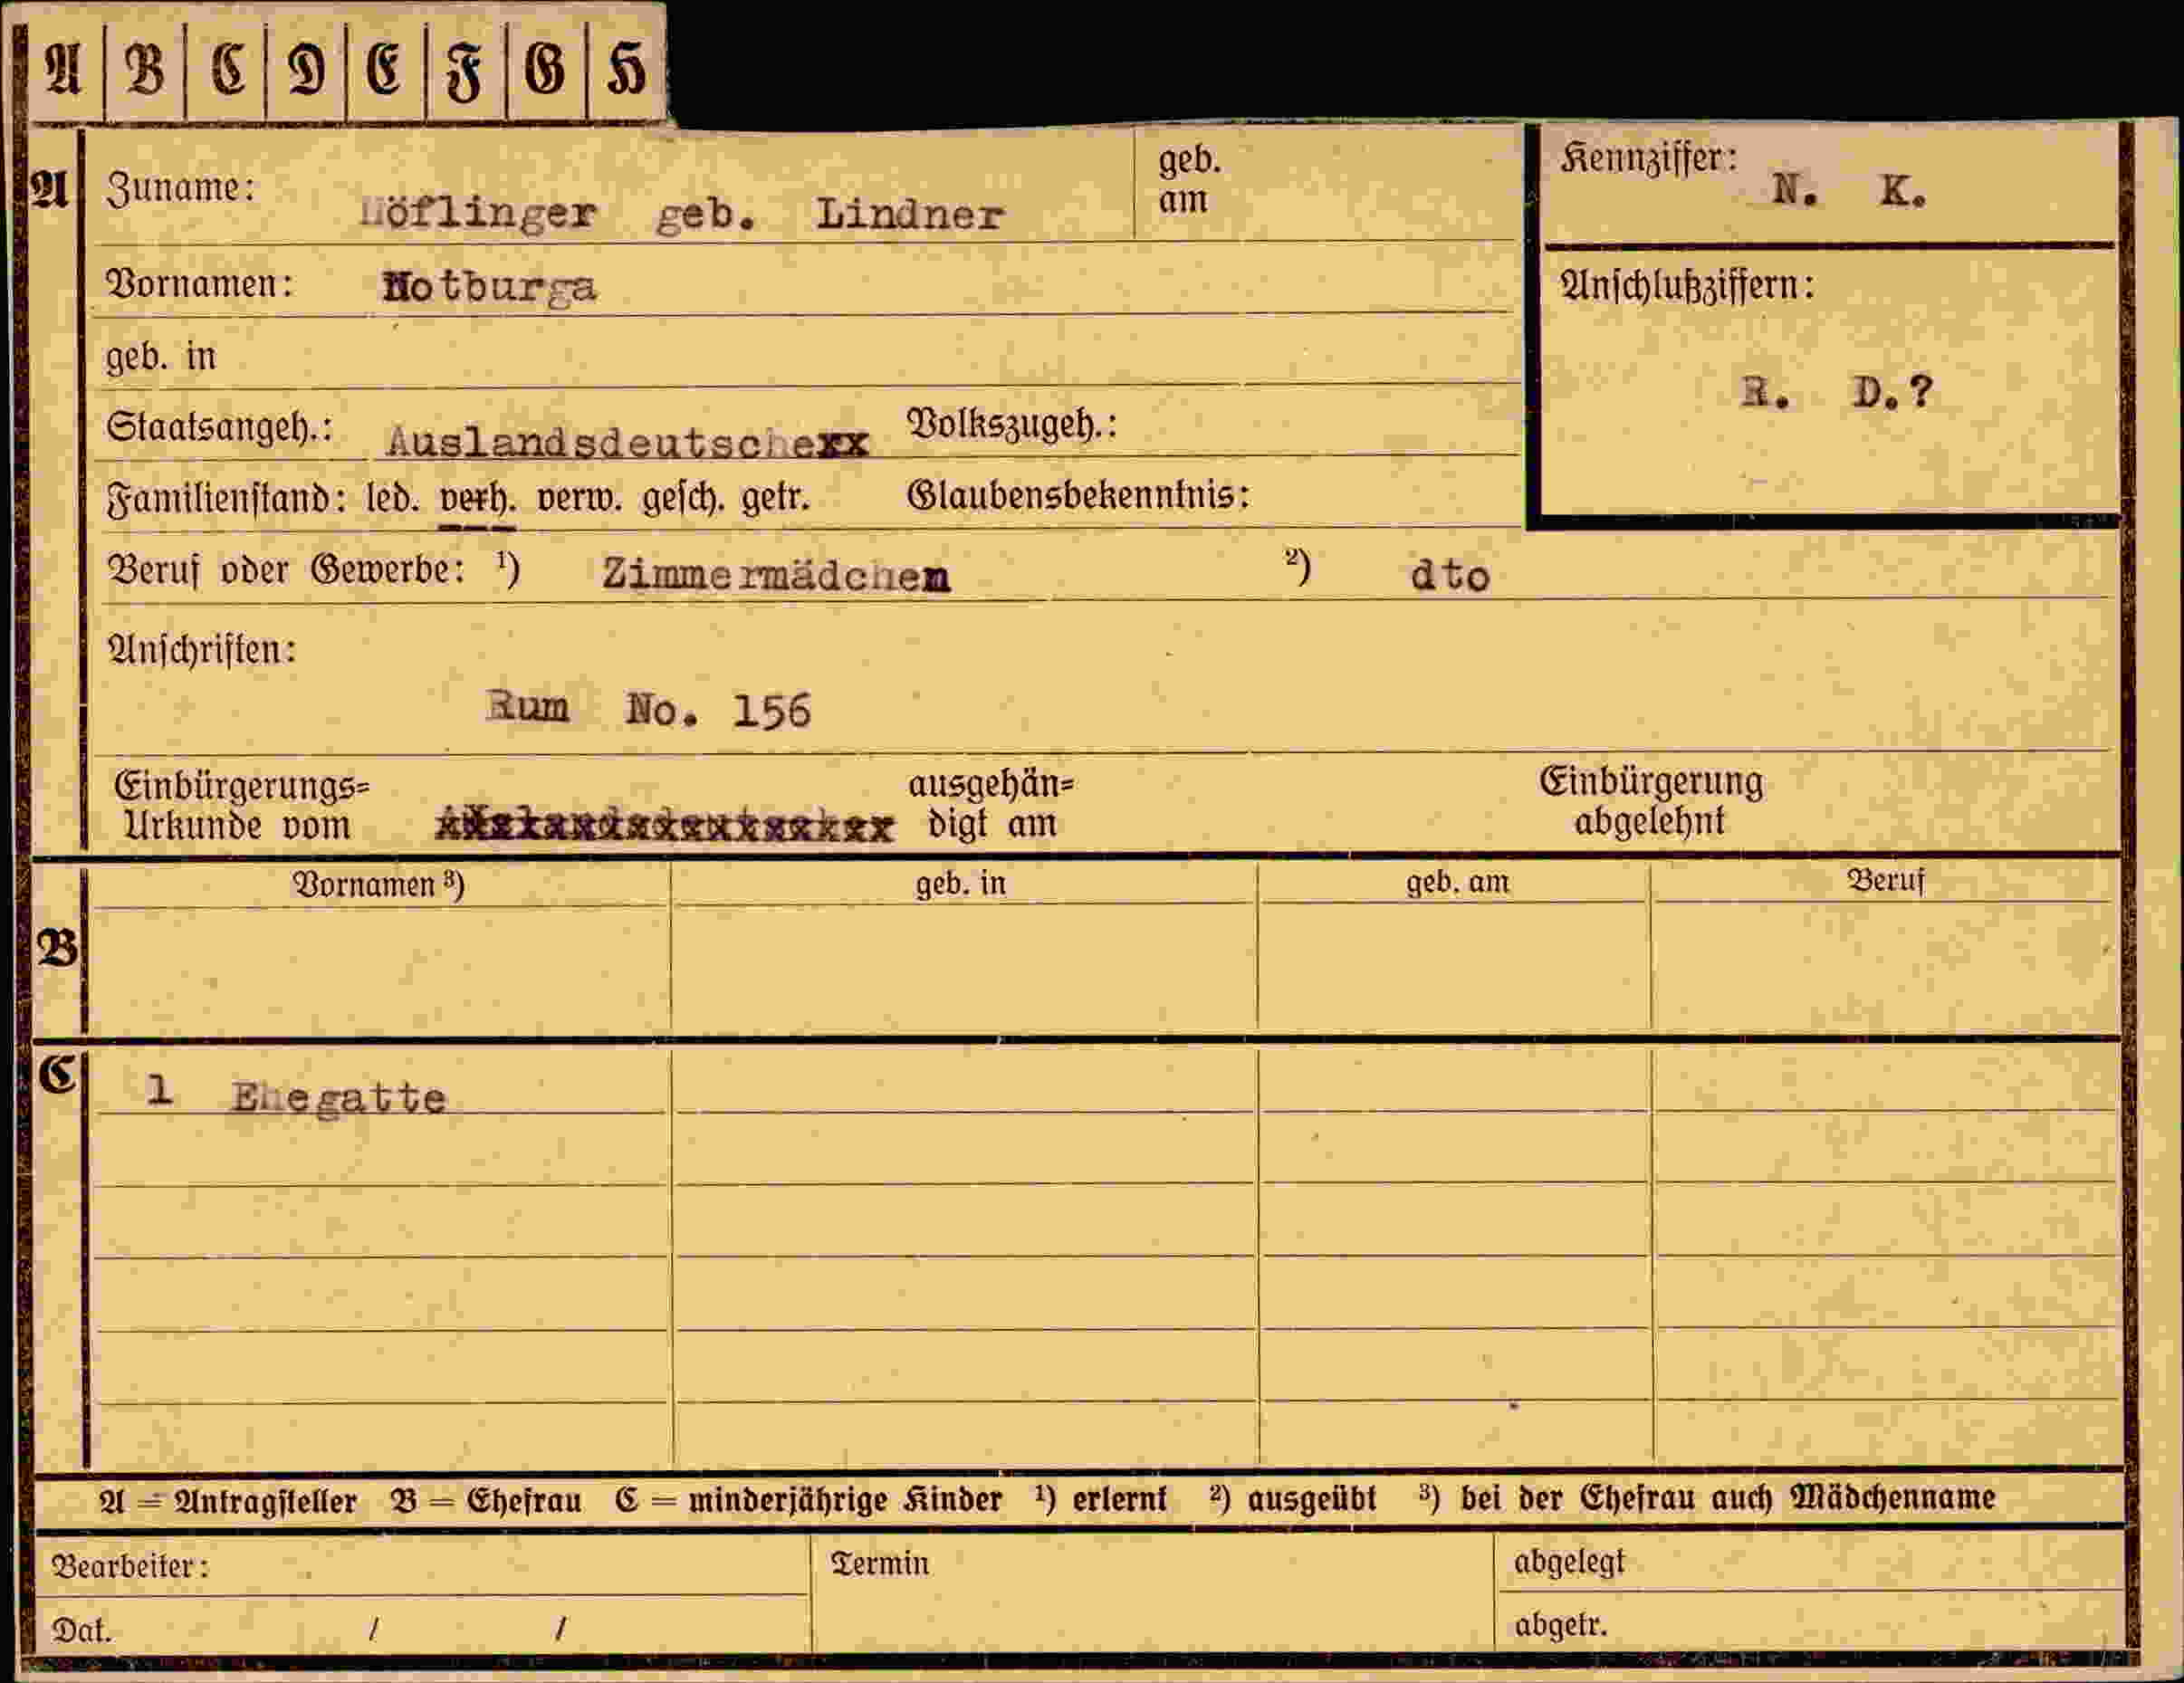 A B C D E F G H
A Zuname: Höflinger geb. Lindner geb. am
Kennziffer: N. K.
Vornamen: Notburga
Anschlußziffern:
geb. in
R. D.?
Staatsangeh.: Auslandsdeutschexx Volkszugeh.:
Familienstand: led. verh. verw. gesch. getr. Glaubensbekenntnis:
Beruf oder Gewerbe: ¹) Zimmermädchen ²) dto
Anschriften:
Rum No. 156
Einbürgerungs= ausgehän= Einbürgerung
Urkunde vom digt am abgelehnt
Vornamen ³) geb. in geb. am Beruf
B
C 1 Ehegatte
A = Antragsteller B = Ehefrau C = minderjährige Kinder ¹) erlernt ²) ausgeübt ³) bei der Ehefrau auch Mädchenname
Bearbeiter: Termin abgelegt
Dat. / / abgetr.